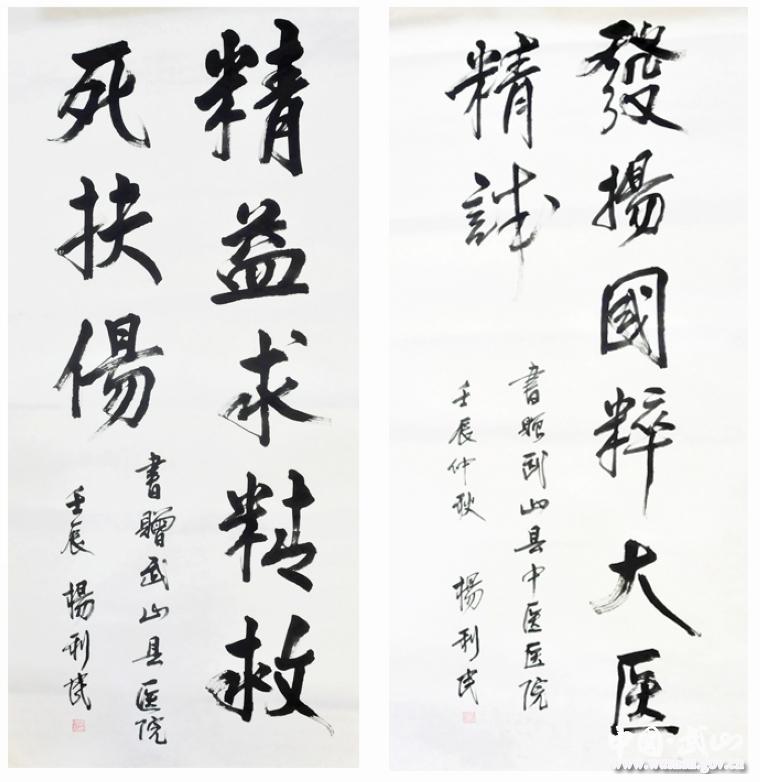 發揚國粹大医
精誠
書贈武山县中医医院
壬辰仲秋 楊利民
精益求精救
死扶傷
書贈武山县医院
壬辰 楊利民
中国·武山
www.wushan.gov.cn